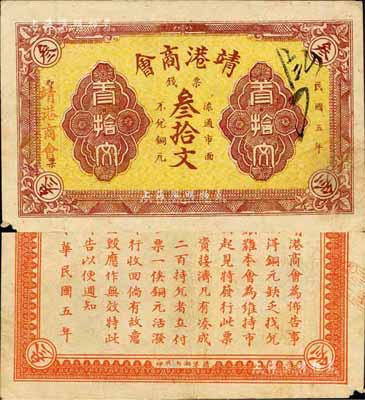 靖港商會
民國五年
票錢
流通市面
叁拾文
不兌銅元
百拾文
百拾文
叁
叁
叁
叁
靖港商會票
靖港商會為佈告事
淂銅元缺乏找兌
艱難本會為維持市
起見特發行此票
資接濟凡有湊成
二百持兌者立付
票一俟銅元活潑
行收回倘有故意
毀應作無效特此
告以便通知
華民國五年